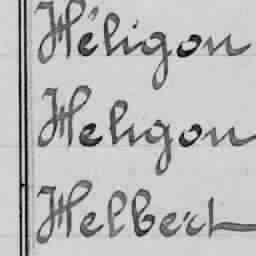 Héligon
Heligon
Helbert